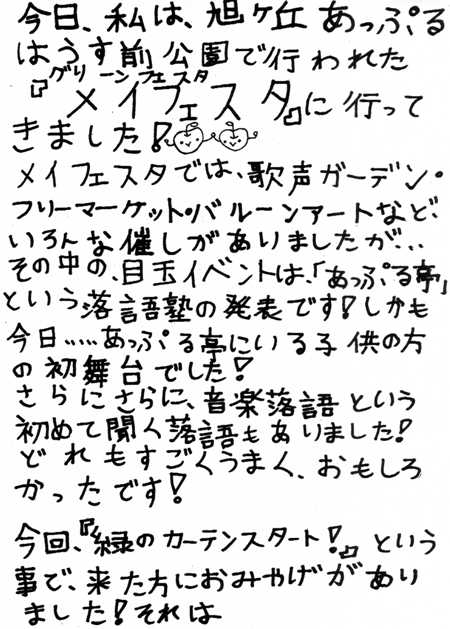 今日、私は、旭ヶ丘あっぷる
はうす前公園で行われた
グリーンフェスタ
『メイフェスタ』に行って
きました!
メイフェスタでは、歌声ガーデン・
フリーマーケット・バルーンアートなど、
いろんな催しがありましたが…
その中の、目玉イベントは、「あっぷる亭」
という落語塾の発表です!しかも
今日……あっぷる亭にいる子供の方
の初舞台でした!
さらにさらに、音楽落語という
初めて聞く落語もありました!
どれもすごくうまく、おもしろ
かったです!
今回、『緑のカーテンスタート!』という
事で、来た方におみやげがあり
ました!それは